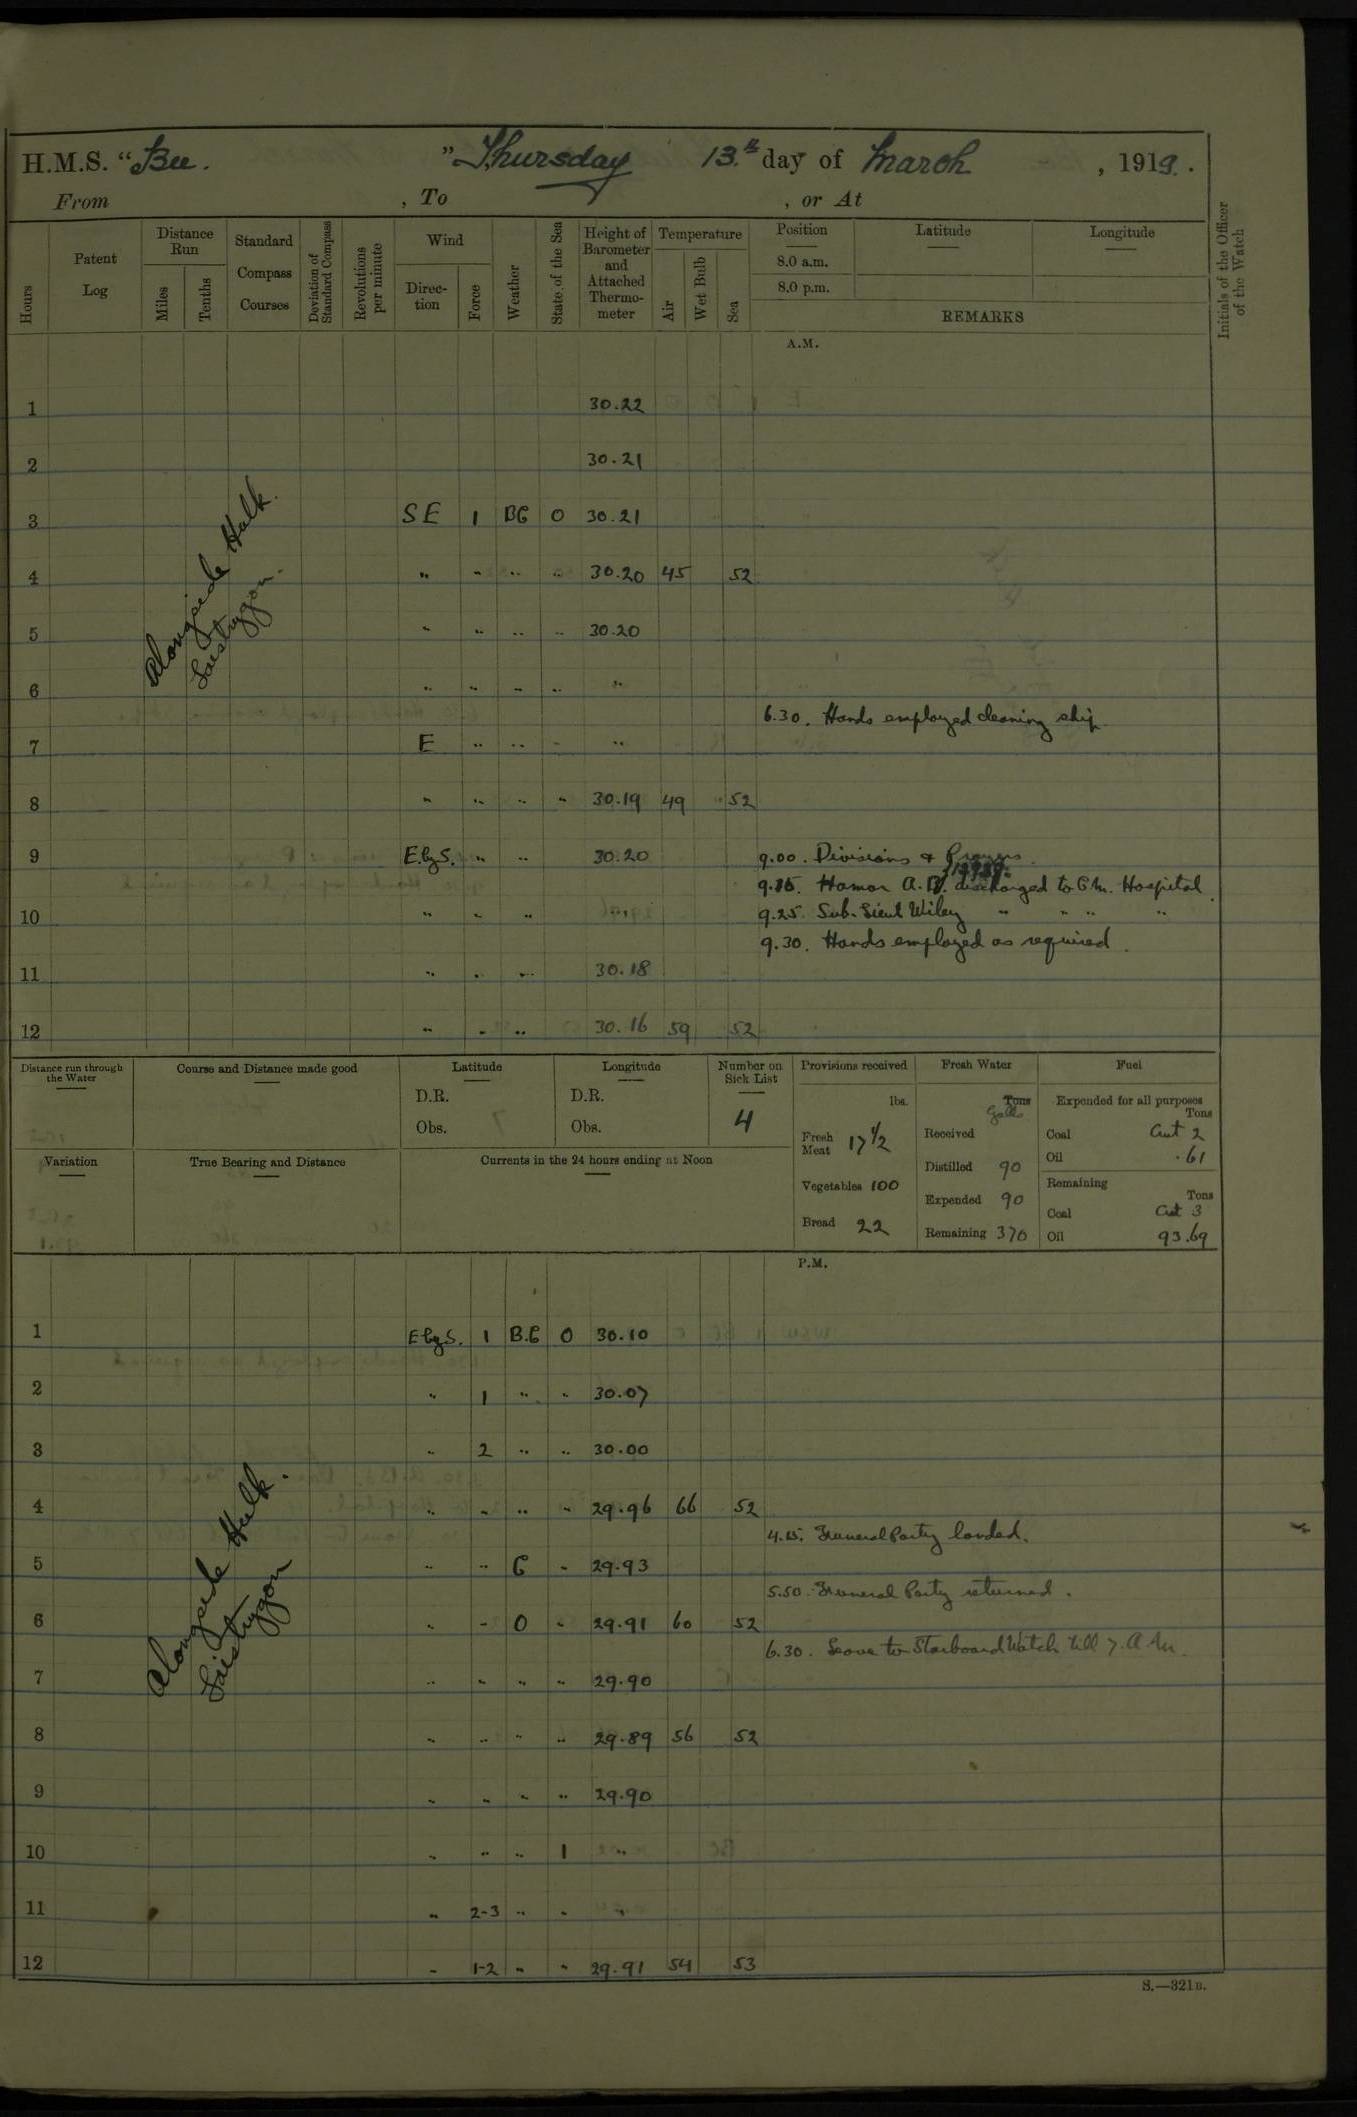 H.M.S. "Bee. " Thursday 13.th day of March, 1919.
From , To , or At
Hours
Patent Log
Distance Run
Miles
Tenths
Standard Compass Courses
Deviation of Standard Compass
Revolutions per minute
Wind
Direction
Force
Weather
State of the Sea
Height of Barometer and Attached Thermometer
Temperature
Air
Wet Bulb
Sea
Position
8.0 a.m.
8.0 p.m.
Latitude
Longitude
REMARKS
Initials of the Officer of the Watch
A.M.
Alongside Hulk.
Laistrygon.
1 30.22
2 30.21
3 SE 1 BC 0 30.21
4 " " " " 30.20 45 52
5 " " " " 30.20
6 " " " " "
6.30. Hands employed cleaning ship.
7 E " " " "
8 " " " " 30.19 49 52
9 E.by S. " " 30.20
9.00. Divisions & Prayers.
Hamon A.B. discharged to C.M. Hospital.
10 " " " "
9.25. Sub. Lieut Wiley " " " "
9.30. Hands employed as required.
11 " " " 30.18
12 " " " 30.16 59 52
Distance run through the Water
Course and Distance made good
Latitude
D.R.
Obs.
Longitude
D.R.
Obs.
Number on Sick List
4
Variation
True Bearing and Distance
Currents in the 24 hours ending at Noon
Provisions received
lbs.
Fresh Meat 17 1/2
Vegetables 100
Bread 22
Fresh Water
Tons
Galls
Received
Distilled 90
Expended 90
Remaining 370
Fuel
Expended for all purposes
Tons
Coal Cwt 2
Oil .61
Remaining
Tons
Coal Cwt 3
Oil 93.69
P.M.
Alongside Hulk.
Laistrygon
1 E by S. 1 B.C 0 30.10
2 " 1 " " 30.07
3 " 2 " " 30.00
4 " " " " 29.96 66 52
4.15. Funeral Party landed.
5 " " C " 29.93
5.50. Funeral Party returned.
6 " " O " 29.91 60 52
6.30. Leave to Starboard Watch till 7. A.M.
7 " " " " 29.90
8 " " " " 29.89 56 52
9 " " " " 29.90
10 " " " 1 "
11 " 2-3 " " "
12 " 1-2 " " 29.91 54 53
S.—321B.